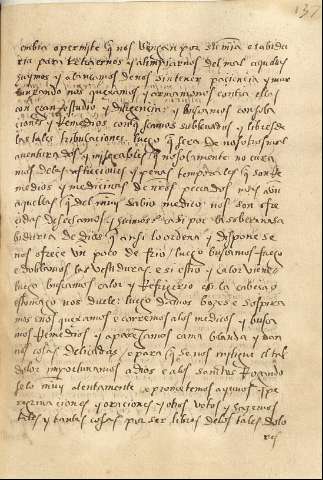 137
embia o permite q̃ nos vengan por su mia e sabidu
ria para retraernos y alimpiarnos del mal aquellas
huymos y alançamos de nos sin tener paciencia y mur
murando nos quexamos y ensañamos contra ellas
con gran estudio y diligencia y buscamos consola
ciones y remedios con q̃ seamos sublevados y libres de
las tales tribulaciones. luego q̃ sera de nosotros mal
aventurados y miserables q̃ no solamente no cura
mos de las afflictiones y penas temporales q̃ son re
medios y medicinas de nros peccados mas aun
aquellas q̃ del muy sabio medico nos son ofre
cidas desechamos y huimos casi por la soberana sa
biduria de dios q̃ ansi lo ordena y dispone se
nos ofrece un poco de frio luego buscamos fuego
e doblamos las vestiduras. e si estio y calor viene
luego buscamos calor y refrigerio si la cabeça o
estomago nos duele: luego damos bozes e sospira
mos e nos quexamos e corremos a los medicos y busca
mos remedios y aparejamos cama blanda y dan
nos cosas delicadas e para q̃ se nos mitigue el tal
dolor importunamos a dios e a los sanctos rogando
selo muy atentamente e prometemos ayunos y pe
regrinaciones y oraciones y otros votos y hazemos
tales y tantas cosas por ser libres de los tales dolo
res